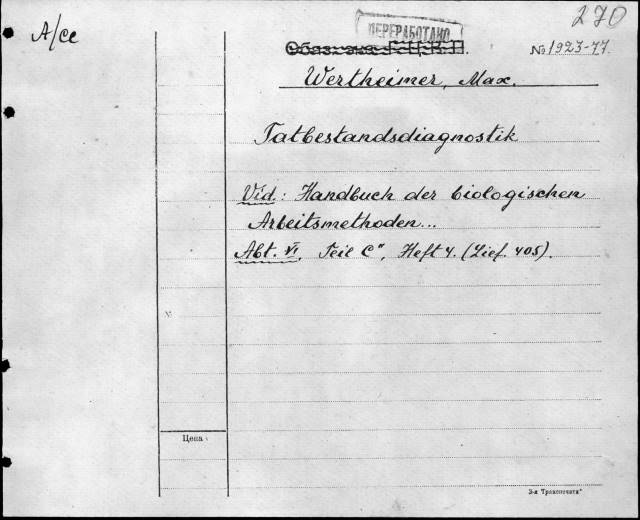 270
ПЕРЕРАБОТАНО
А/се
№ 1923-77
Wertheimer, Max.
Tatbestandsdiagnostik
Vid.: Handbuch der biologischen
Arbeitsmethoden...
Abt. VI, Teil C", Heft 4. (Lief. 405).
№
Цена
3-я Транспечати"